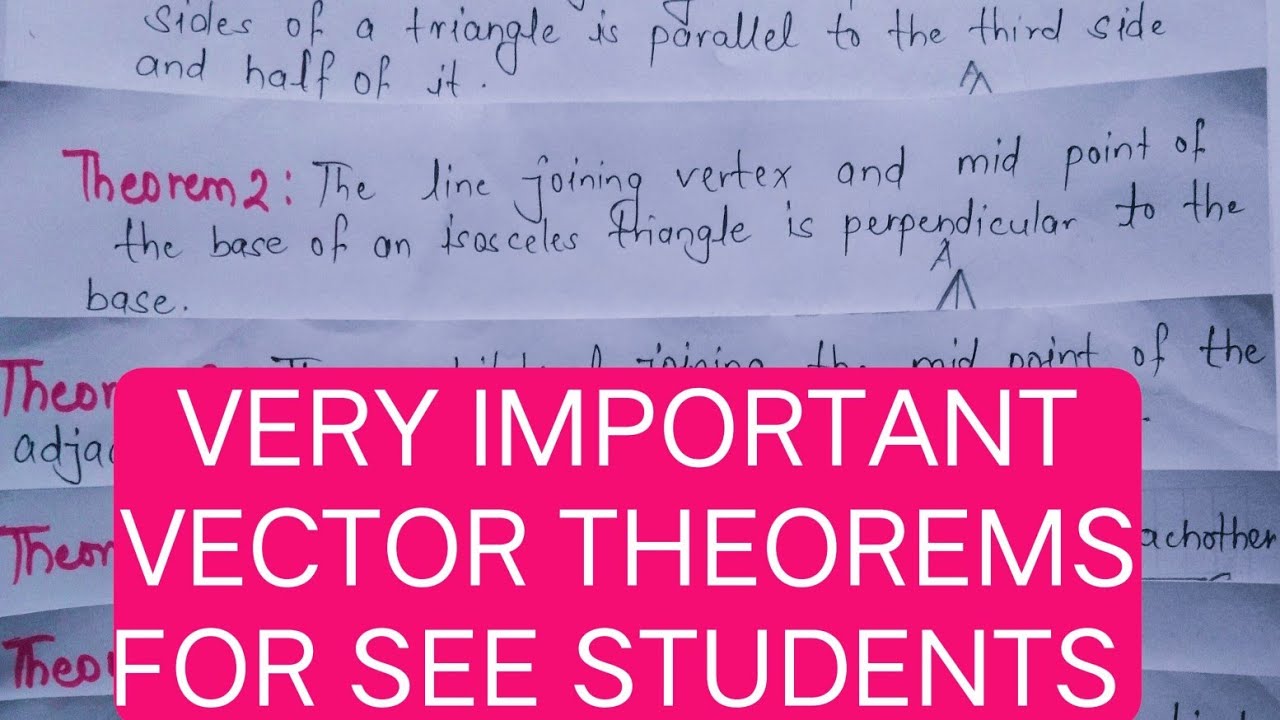 sides of a triangle is parallel to the third side
and half of it.
A
Theorem 2: The line joining vertex and mid point of
the base of an isosceles triangle is perpendicular to the
base.
A
joining the mid point of the
VERY IMPORTANT
VECTOR THEOREMS
FOR SEE STUDENTS